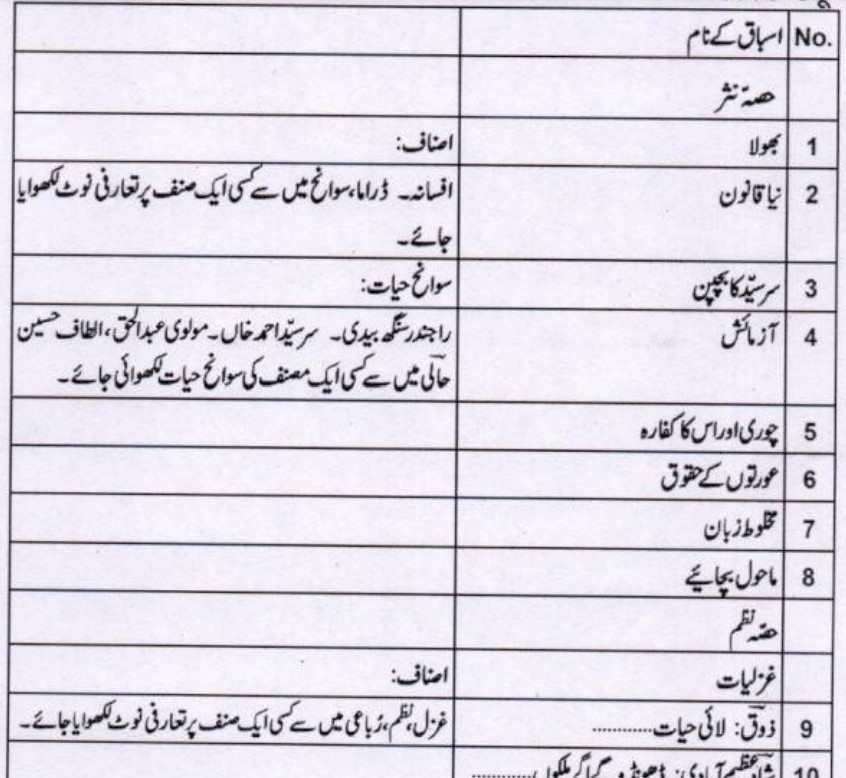 No. اسباق کے نام
حصۂ نثر
1 بھولا اصناف:
2 نیا قانون افسانہ۔ ڈراما، سوانح میں سے کسی ایک صنف پر تعارفی نوٹ لکھوایا
جائے۔
3 سرسیّد کا بچپن سوانح حیات:
4 آزمائش راجندر سنگھ بیدی۔ سرسیّد احمد خاں۔ مولوی عبدالحق، الطاف حسین
حالی میں سے کسی ایک مصنف کی سوانح حیات لکھوائی جائے۔
5 چوری اور اس کا کفارہ
6 عورتوں کے حقوق
7 مخلوط زبان
8 ماحول بچائیے
حصّہ نظم
غزلیات اصناف:
9 ذوق: لائی حیات............ غزل، نظم، رُباعی میں سے کسی ایک صنف پر تعارفی نوٹ لکھوایا جائے۔
10 شاد عظیم آبادی: ڈھونڈو گے اگر ملکوں............